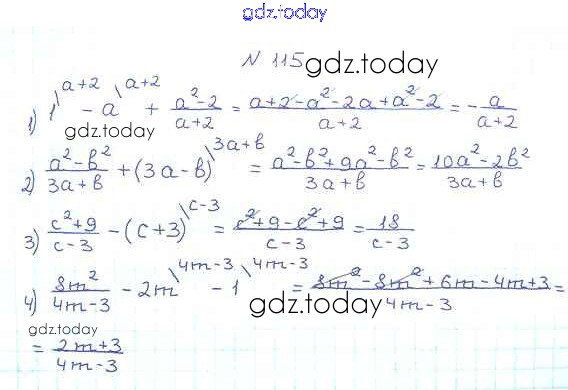 gdz.today
N 115 gdz.today
1) 1^{\a+2} - a^{\a+2} + \frac{a^2-2}{a+2} = \frac{a+2-a^2-2a+a^2-2}{a+2} = -\frac{a}{a+2}
gdz.today
2) \frac{a^2-b^2}{3a+b} + (3a-b)^{\3a+b} = \frac{a^2-b^2+9a^2-b^2}{3a+b} = \frac{10a^2-2b^2}{3a+b}
3) \frac{c^2+9}{c-3} - (c+3)^{\c-3} = \frac{c^2+9-c^2+9}{c-3} = \frac{18}{c-3}
4) \frac{8m^2}{4m-3} - 2m^{\4m-3} - 1^{\4m-3} = \frac{8m^2-8m^2+6m-4m+3}{4m-3} =
gdz.today
gdz.today
= \frac{2m+3}{4m-3}